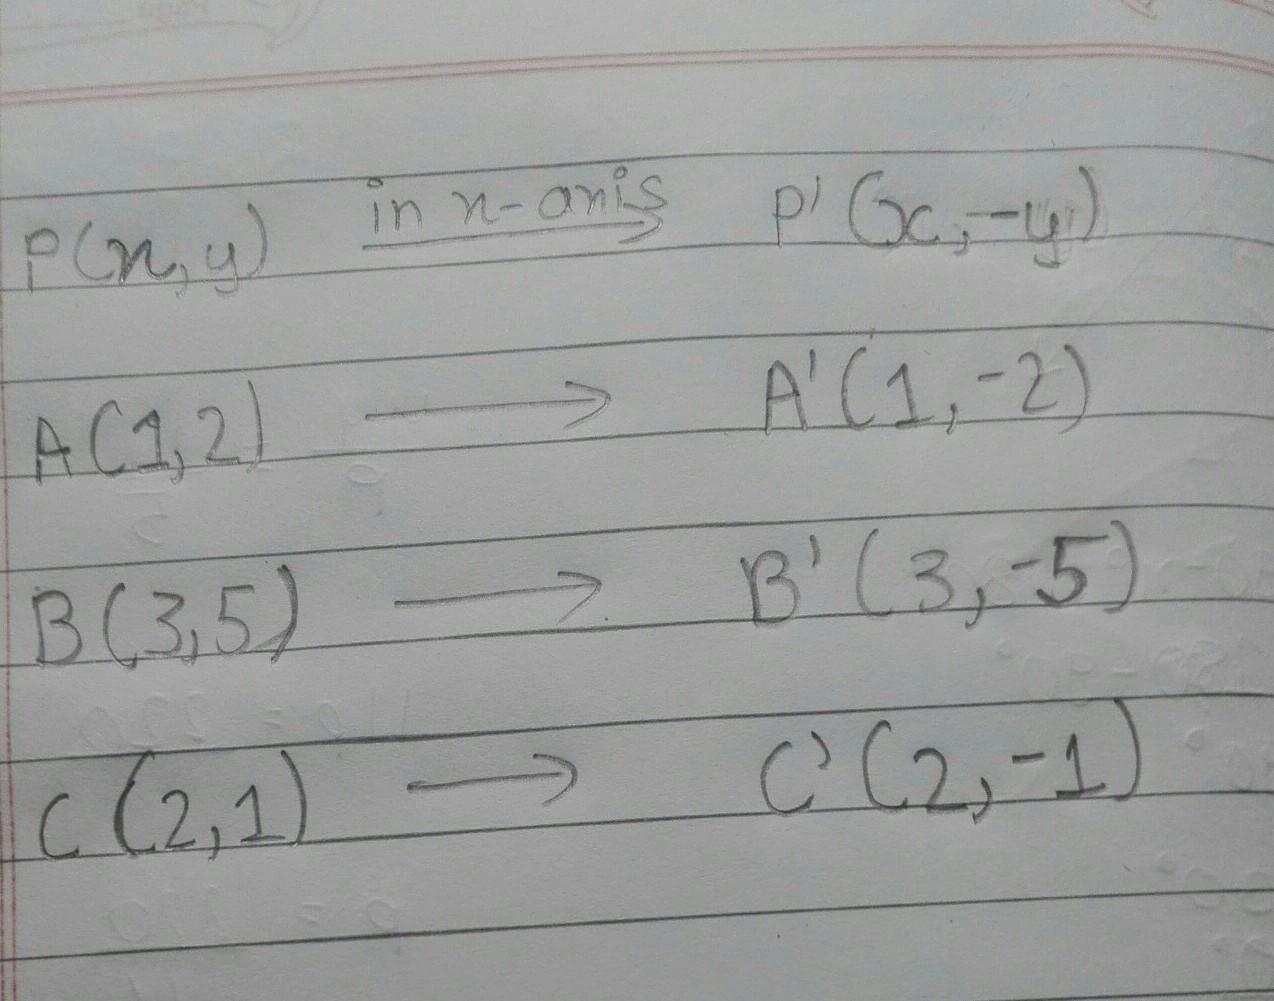 P(x,y) in x-axis P'(x,-y)
A(1,2) → A'(1,-2)
B(3,5) → B'(3,-5)
C(2,1) → C'(2,-1)